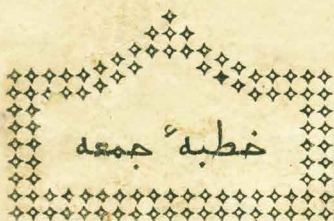 خطبهٔ جمعه